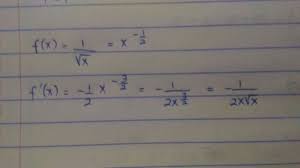 f(x) = 1/√x = x^(-1/2)
f'(x) = -1/2 x^(-3/2) = -1/(2x^(3/2)) = -1/(2x√x)